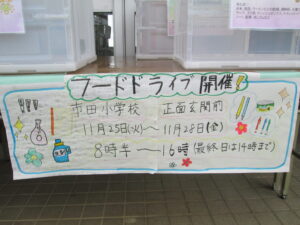 フードドライブ開催!
市田小学校 正面玄関前
11月25日(火)〜11月28日(金)
8時半〜16時(最終日は14時まで)